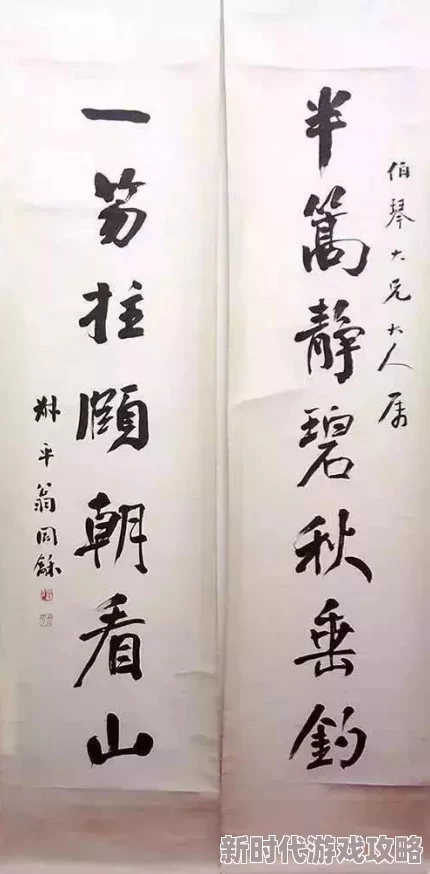 伯琴大兄大人属
半篙静碧秋垂釣
一笏拄頤朝看山
叔平翁同龢
新时代游戏攻略